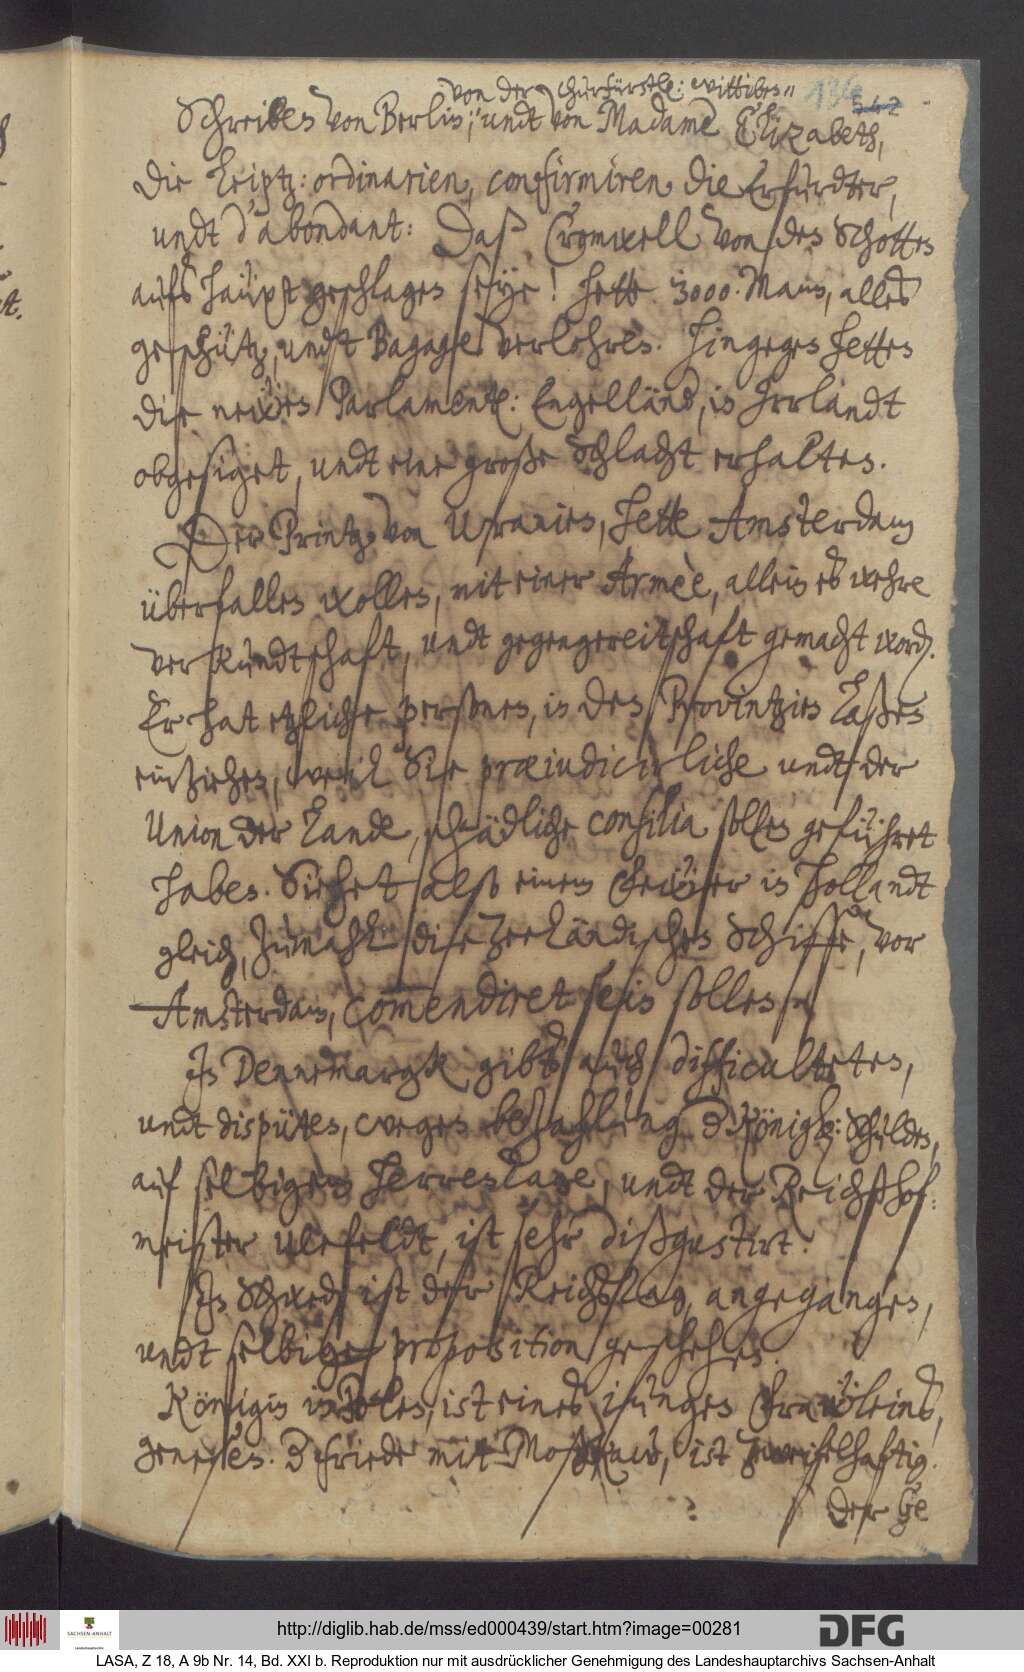 von der Churfürstl: Wittiben"
136
542
Schreiben von Berlin, undt von Madame Elizabeth,
Die Leiptz: ordinarien, confirmiren die Erfurdter,
undt d'abondant: Daß Cromwell von den Schotten
aufs haüpt geschlagen seye! hette 3000. Mann, alles
geschütz, undt Bagage verlohren. Hingegen hetten
die neẅen Parlamentl: Engelländ, in Irrlandt
obgesiget, undt eine große Schlacht erhalten.
Der Printz von Uranien, hette Amsterdam
überfallen wollen, mit einer Armèe, allein es wehre
verkundtschaft, undt gegengereitschaft gemacht word.
Er hat etzliche personen, in den Provintzien laßen
einziehen, weil Sie præiudicirliche undt der
Union der Lande, schädliche consilia sollen geführet
haben. Siehet alß einem feẅer in Hollandt
gleich, zumahl die Zeeländischen Schiffe, vor
Amsterdam, commendiret sein sollen
In Dennemargk gibts auch difficulteten,
undt dispüten, wegen bezahlung d Königl: Schulden,
auf selbigem Herrentage, undt der Reichßhof:
meister Ulefeldt, ist sehr dißgustirt.
In Schwed ist der Reichstag, angegangen,
undt selbige proposition geschehen.
Königin in Polen, ist eines jungen fraẅleins,
genesen. D friede mit Moßkaw, ist zweifelhaftig.
Der Ge
http://diglib.hab.de/mss/ed000439/start.htm?image=00281
SACHSEN-ANHALT
DFG
LASA, Z 18, A 9b Nr. 14, Bd. XXI b. Reproduktion nur mit ausdrücklicher Genehmigung des Landeshauptarchivs Sachsen-Anhalt